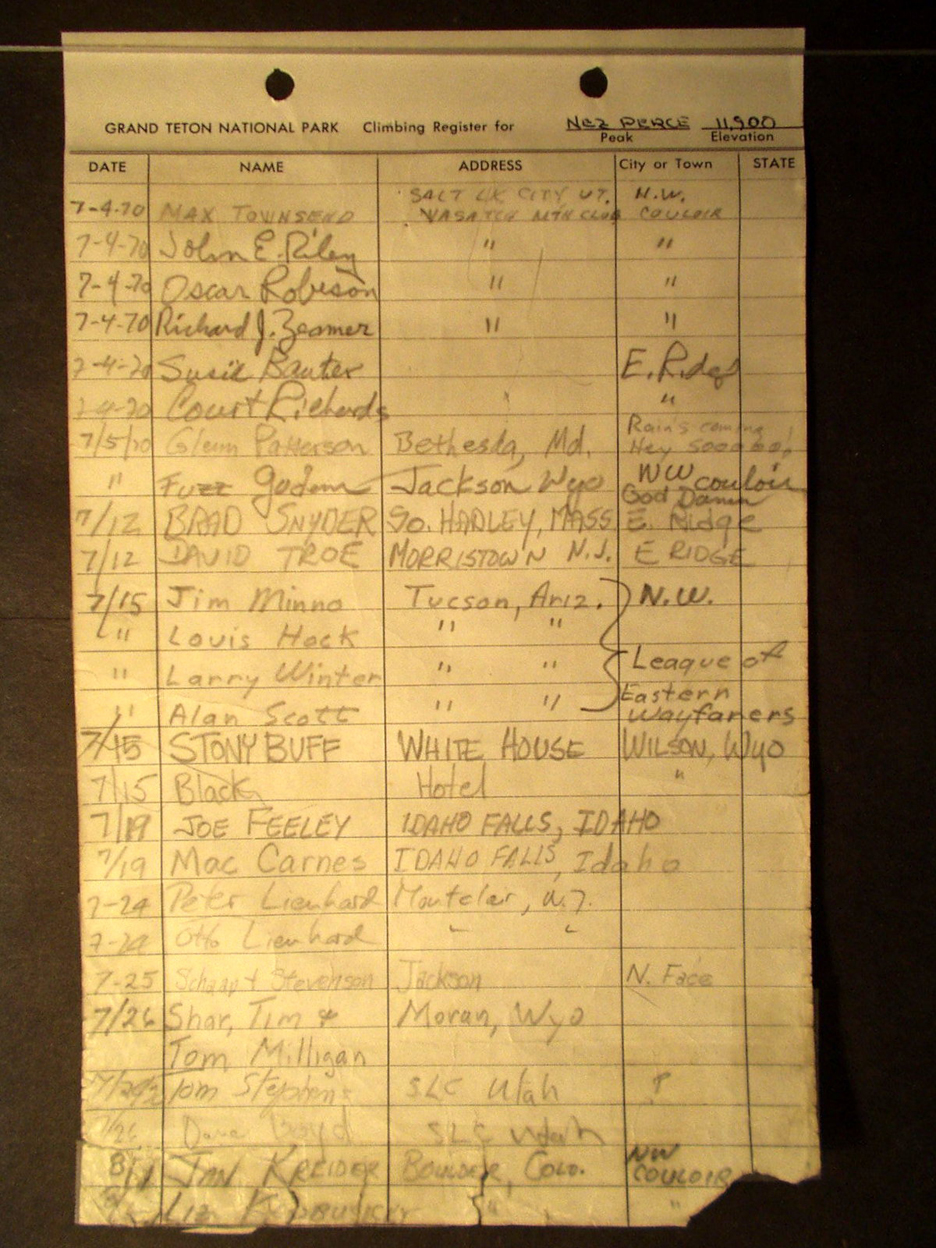 GRAND TETON NATIONAL PARK Climbing Register for NEZ PERCE 11,900
Peak Elevation
DATE NAME ADDRESS City or Town STATE
SALT LK CITY UT. N.W.
7-4-70 MAX TOWNSEND WASATCH MTN CLUB COULOIR
7-4-70 John E. Riley " "
7-4-70 Oscar Robison " "
7-4-70 Richard J. Zeamer " "
7-4-70 Susie Bauter E. Ridge
7-4-70 Court Richards "
Rain's coming
7/5/70 Glenn Patterson Bethesda, Md. Hey
" Fuzz Jackson Wyo NW couloir
God Damn
7/12 BRAD SNYDER SO. HADLEY, MASS E. Ridge
7/12 DAVID TROE MORRISTOWN N.J. E RIDGE
7/15 Jim Minno Tucson, Ariz. N.W.
" Louis Hock " "
" Larry Winter " " League of
Eastern
" Alan Scott " " Wayfarers
7/15 STONY BUFF WHITE HOUSE WILSON, Wyo
7/15 Black Hotel "
7/19 JOE FEELEY IDAHO FALLS, IDAHO
7/19 Mac Carnes IDAHO FALLS, Idaho
7-24 Peter Lienhard Montclair, N.J.
7-24 Otto Lienhard " "
7-25 Stevenson Jackson N. Face
7/26 Shar, Tim & Moran, Wyo
Tom Milligan
Tom Stephens SLC Utah ?
7/26 Dave Boyd SLC Utah
8/1 JAN KREIDER BOULDER, COLO. NW
COULOIR
LIZ " "